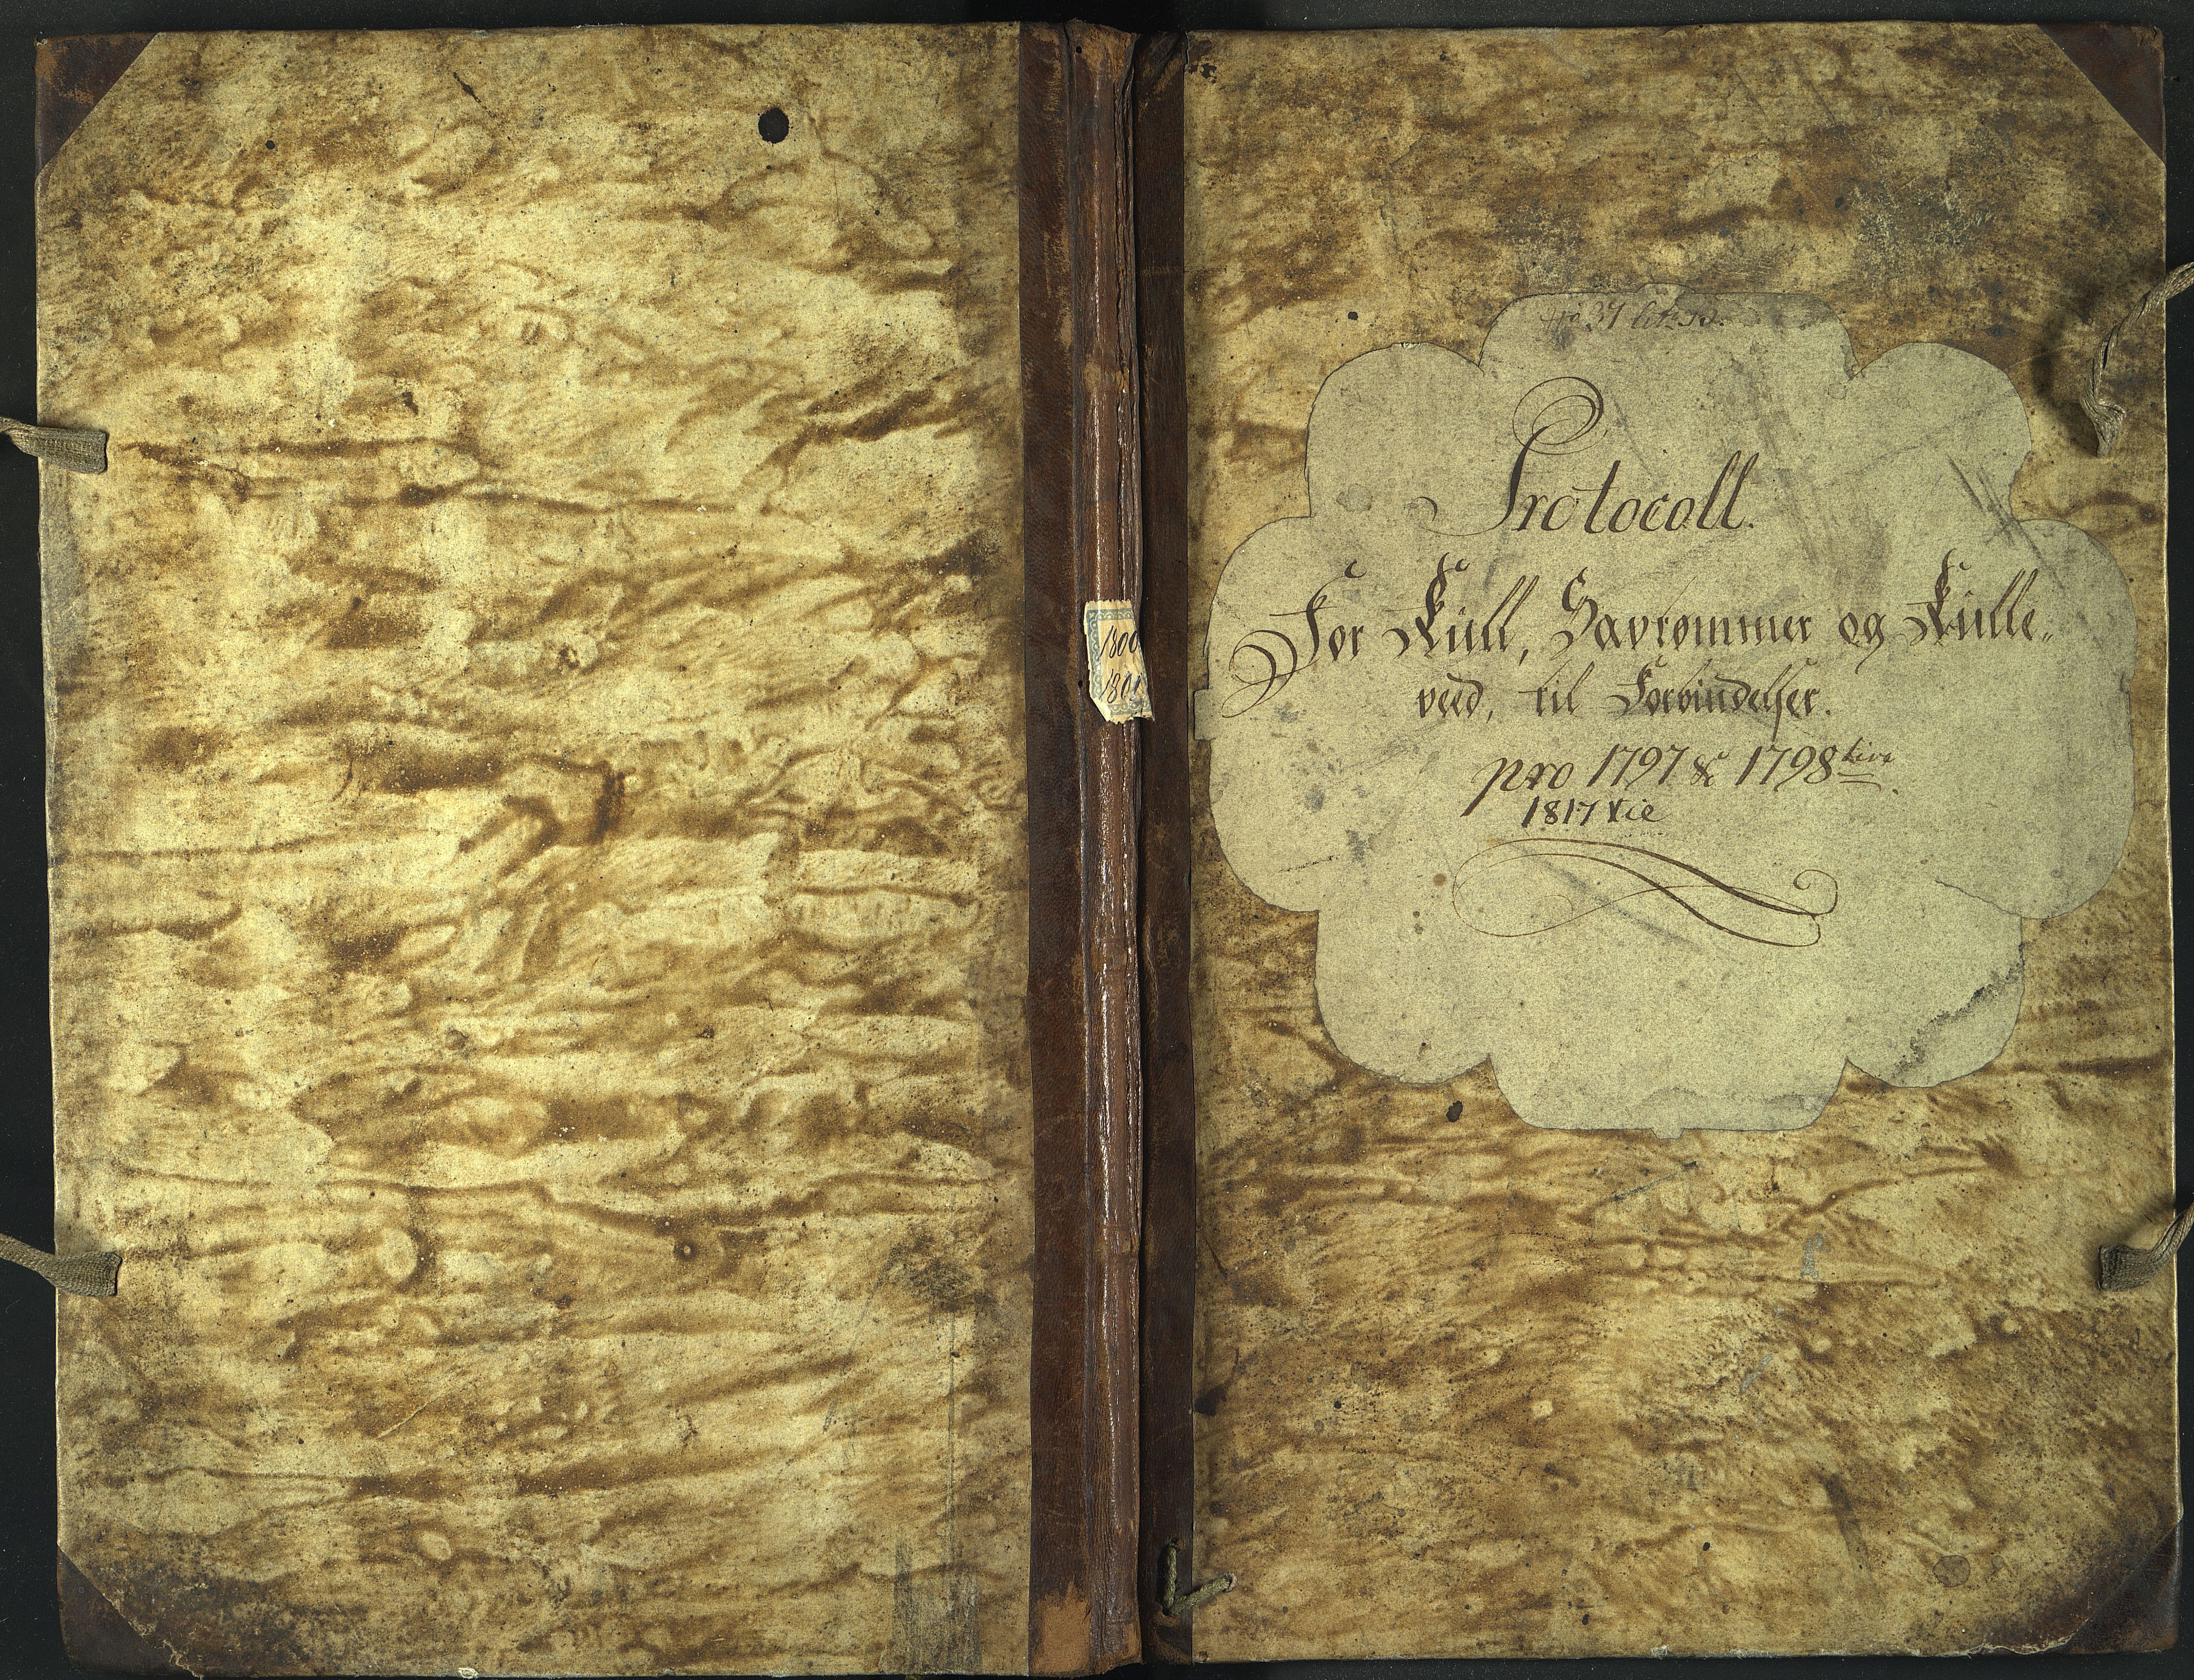 1800
1801
No 37
Protocoll.
For Kull, Savtømmer og Kulle„
veed, til Forbindelser.
pro 1797 & 1798
1817